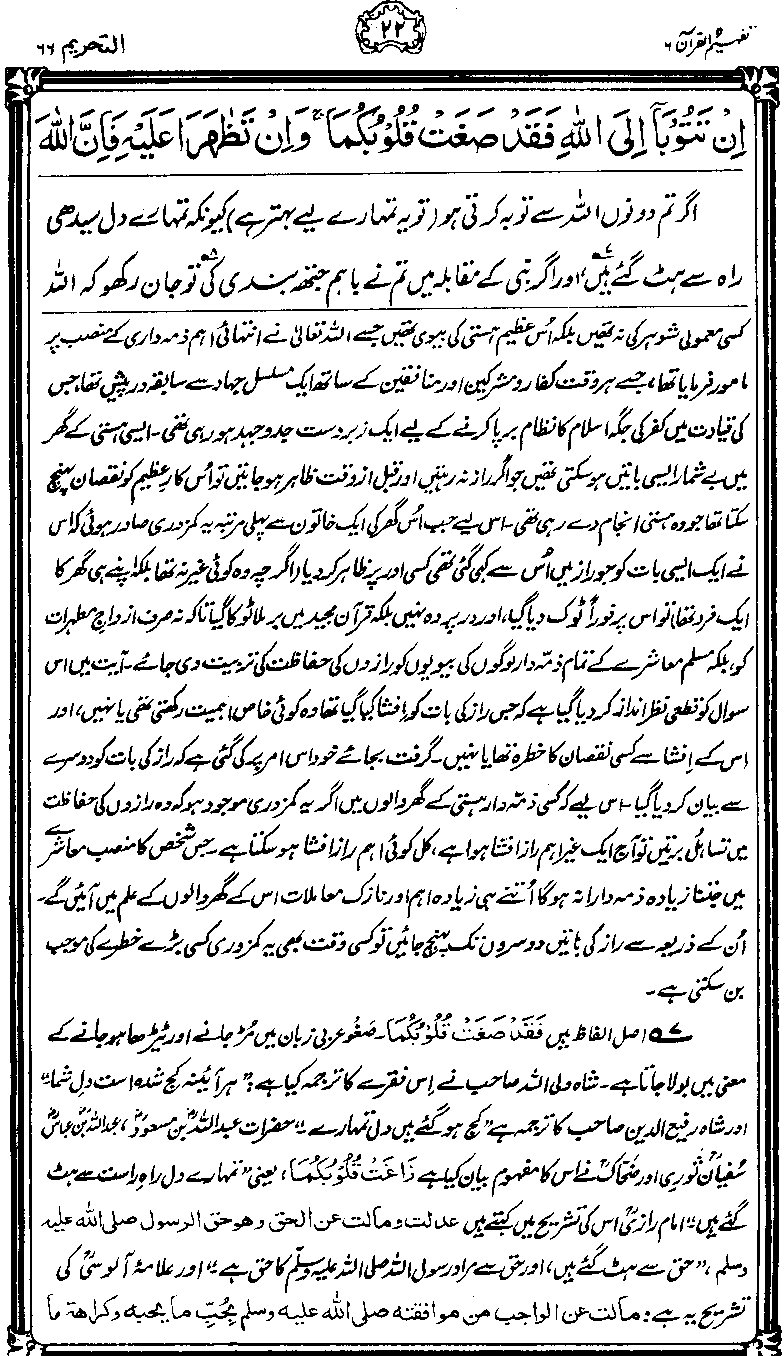 تفہیم القرآن ۶
۲۲
التحریم ۶۶
اِنْ تَتُوْبَاۤ اِلَى اللّٰهِ فَقَدْ صَغَتْ قُلُوْبُكُمَا ۚ وَاِنْ تَظٰهَرَا عَلَيْهِ فَاِنَّ اللّٰهَ
اگر تم دونوں اللہ سے توبہ کرتی ہو (تو یہ تمہارے لیے بہتر ہے) کیونکہ تمہارے دل سیدھی
راہ سے ہٹ گئے ہیں،۷ اور اگر نبی کے مقابلہ میں تم نے باہم جتھہ بندی کی۸ تو جان رکھو کہ اللہ
کسی معمولی شوہر کی نہ تھیں بلکہ اُس عظیم ہستی کی بیوی تھیں جسے اللہ تعالیٰ نے انتہائی اہم ذمہ داری کے منصب پر
مامور فرمایا تھا، جسے ہر وقت کفار و مشرکین اور منافقین کے ساتھ ایک مسلسل جہاد سے سابقہ درپیش تھا، جس
کی قیادت میں کفر کی جگہ اسلام کا نظام برپا کرنے کے لیے ایک زبردست جدوجہد ہو رہی تھی۔ ایسی ہستی کے گھر
میں بے شمار ایسی باتیں ہو سکتی تھیں جو اگر راز نہ رہتیں اور قبل از وقت ظاہر ہو جاتیں تو اُس کارِ عظیم کو نقصان پہنچ
سکتا تھا جو وہ ہستی انجام دے رہی تھی۔ اس لیے جب اُس گھر کی ایک خاتون سے پہلی مرتبہ یہ کمزوری صادر ہوئی کہ اس
نے ایک ایسی بات کو جو راز میں اُس سے کہی گئی تھی کسی اور پر ظاہر کر دیا (اگرچہ وہ کوئی غیر نہ تھا بلکہ اپنے ہی گھر کا
ایک فرد تھا) تو اس پر فوراً ٹوک دیا گیا، اور در پردہ نہیں بلکہ قرآن مجید میں برملا ٹوکا گیا تاکہ نہ صرف ازواجِ مطہرات
کو، بلکہ مسلم معاشرے کے تمام ذمہ دار لوگوں کی بیویوں کو رازوں کی حفاظت کی تربیت دی جائے۔ آیت میں اس
سوال کو قطعی نظر انداز کر دیا گیا ہے کہ جس راز کی بات کو افشا کیا گیا تھا وہ کوئی خاص اہمیت رکھتی تھی یا نہیں، اور
اس کے افشا سے کسی نقصان کا خطرہ تھا یا نہیں۔ گرفت بجائے خود اس امر پر کی گئی ہے کہ راز کی بات کو دوسرے
سے بیان کر دیا گیا۔ اس لیے کہ کسی ذمہ دار ہستی کے گھر والوں میں اگر یہ کمزوری موجود ہو کہ وہ رازوں کی حفاظت
میں تساہل برتیں تو آج ایک غیر اہم راز افشا ہوا ہے، کل کوئی اہم راز افشا ہو سکتا ہے۔ جس شخص کا منصب معاشرے
میں جتنا زیادہ ذمہ دارانہ ہوگا اُتنے ہی زیادہ اہم اور نازک معاملات اس کے گھر والوں کے علم میں آئیں گے۔
اُن کے ذریعہ سے راز کی باتیں دوسروں تک پہنچ جائیں تو کسی وقت بھی یہ کمزوری کسی بڑے خطرے کی موجب
بن سکتی ہے۔
۷ اصل الفاظ ہیں فَقَدْ صَغَتْ قُلُوْبُكُمَا۔ صَغْو عربی زبان میں مُڑ جانے اور ٹیڑھا ہو جانے کے
معنی میں بولا جاتا ہے۔ شاہ ولی اللہ صاحب نے اِس فقرے کا ترجمہ کیا ہے: ”ہر آئینہ کج شدہ است دلِ شما“
اور شاہ رفیع الدین صاحب کا ترجمہ ہے ”کج ہو گئے ہیں دل تمہارے“۔ حضرات عبداللہؓ بن مسعودؓ، عبداللہؓ بن عباسؓ
سُفیانؒ ثوری اور ضحاکؒ نے اس کا مفہوم بیان کیا ہے ذَاغَتْ قُلُوْبُكُمَا، یعنی ”تمہارے دل راہِ راست سے ہٹ
گئے ہیں“۔ امام رازیؒ اس کی تشریح میں کہتے ہیں عدلت ومالت عن الحق وهو حق الرسول صلى الله عليه
وسلم، ”حق سے ہٹ گئے ہیں، اور حق سے مراد رسول اللہ صلی اللہ علیہ وسلم کا حق ہے“۔ اور علامہ آلوسیؒ کی
تشریح یہ ہے: مالت عن الواجب من موافقته صلى الله عليه وسلم بِحُبِّ ما يحبه وكراهة ما